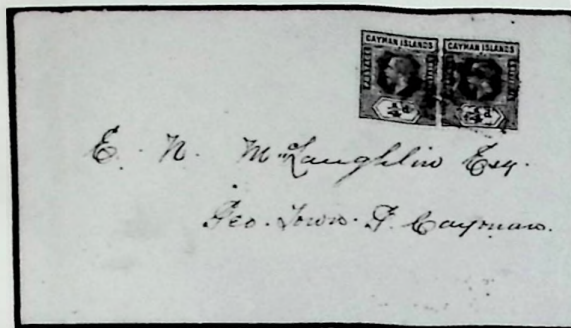 CAYMAN ISLANDS CAYMAN ISLANDS
E. N. McLaughlin Esq.
Geo. Town. G. Cayman.